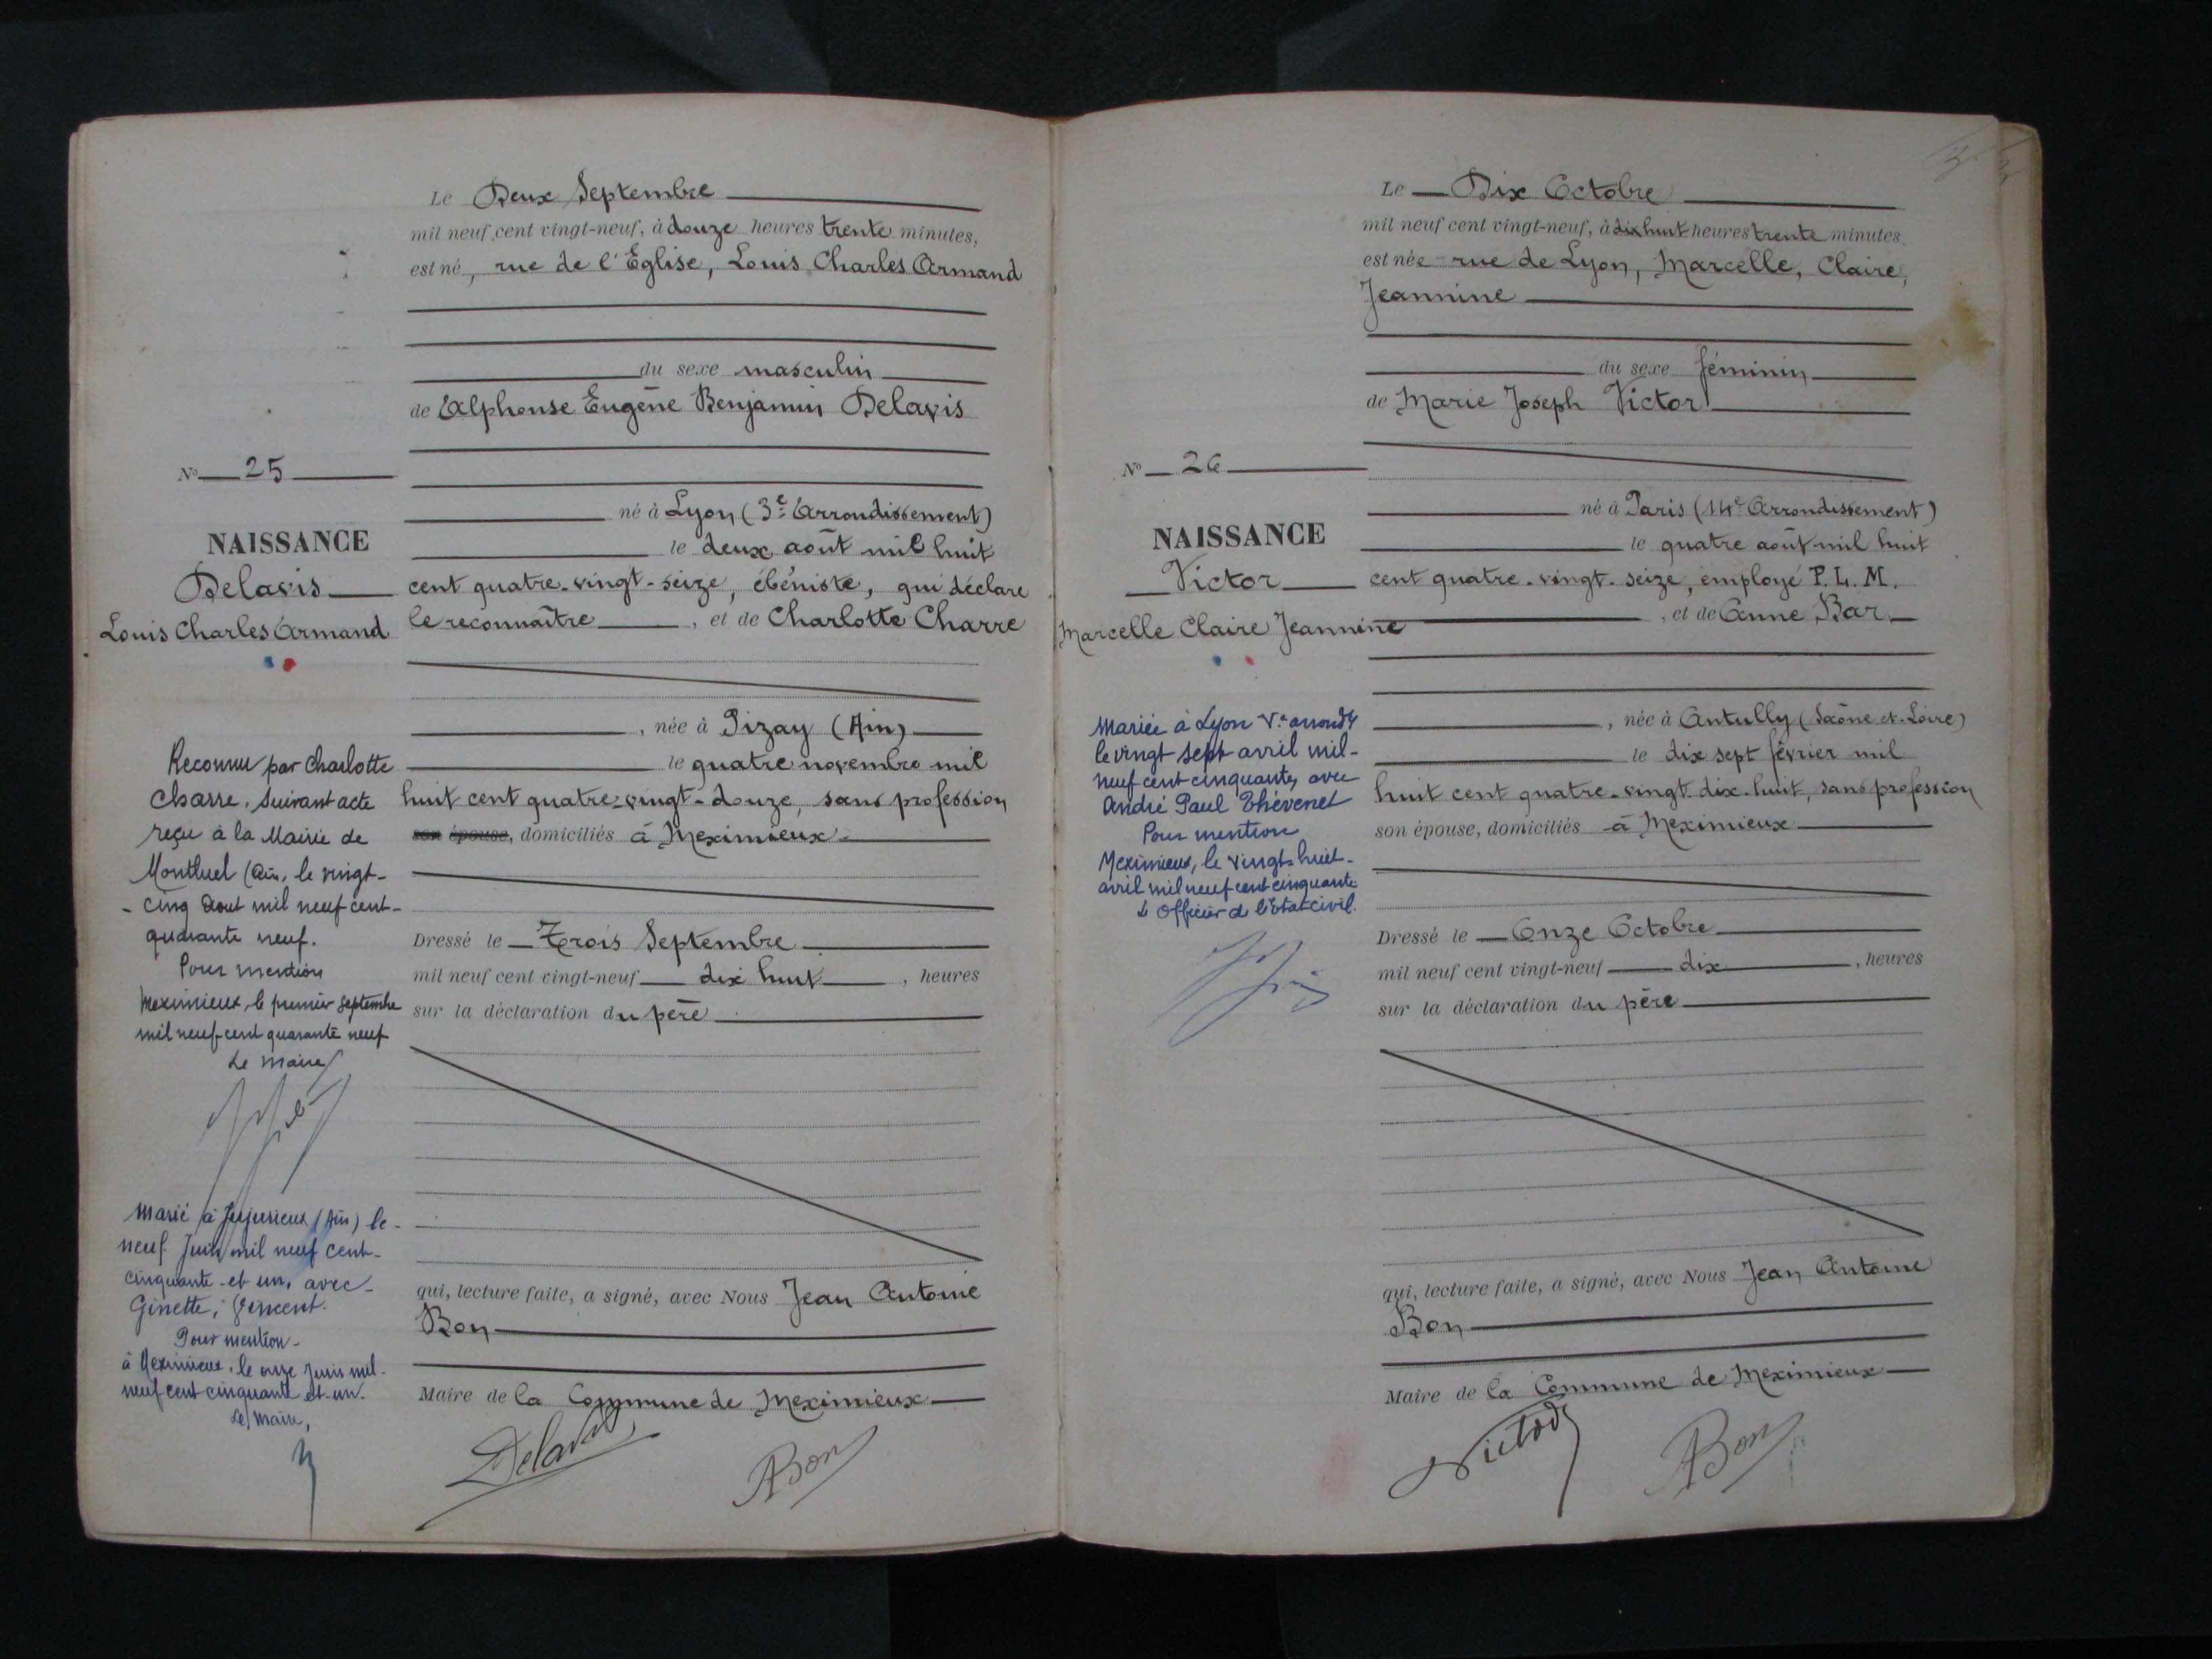 Le Deux Septembre
mil neuf cent vingt-neuf, à douze heures trente minutes,
est né, rue de l'Eglise, Louis Charles Armand
du sexe masculin
de Alphonse Eugène Benjamin Delavis
né à Lyon (3e Arrondissement)
le deux août mil huit
cent quatre-vingt-seize, ébéniste, qui déclare
le reconnaître, et de Charlotte Charre
née à Pizay (Ain)
le quatre novembre mil
huit cent quatre-vingt-douze, sans profession
son épouse, domiciliés à Meximieux
Dressé le Trois Septembre
mil neuf cent vingt-neuf dix huit, heures
sur la déclaration du père
qui, lecture faite, a signé, avec Nous Jean Antoine
Bon
Maire de la Commune de Meximieux
Delavis
ABon
No 25
NAISSANCE
Delavis
Louis Charles Armand
Reconnu par Charlotte
Charre. Suivant acte
reçu à la Mairie de
Montluel (Ain, le vingt-
-cinq Aout mil neuf cent-
quarante neuf.
Pour mention
Meximieux le premier septembre
mil neuf cent quarante neuf
Le Maire
Marié à Jujurieux (Ain) le-
neuf Juin mil neuf cent-
cinquante-et un, avec-
Ginette, Vincent.
Pour mention-
à Meximieux, le onze Juin mil-
neuf cent cinquante et-un.
Le Maire,
Le Dix Octobre
mil neuf cent vingt-neuf, à dix huit heures trente minutes,
est née rue de Lyon, Marcelle, Claire,
Jeannine
du sexe féminin
de Marie Joseph Victor
né à Paris (14e Arrondissement)
le quatre août mil huit
cent quatre-vingt-seize, employé P.L.M.
, et de Anne Bar
, née à Antully (Saône-et-Loire)
le dix sept février mil
huit cent quatre-vingt dix-huit, sans profession
son épouse, domiciliés à Meximieux
Dressé le Onze Octobre
mil neuf cent vingt-neuf dix, heures
sur la déclaration du père
qui, lecture faite, a signé, avec Nous Jean Antoine
Bon
Maire de la Commune de Meximieux
Victor
ABon
No 26
NAISSANCE
Victor
Marcelle Claire Jeannine
Mariée à Lyon Ve arrondt
le vingt sept avril mil-
neuf cent cinquante, avec
André Paul Thévenet
Pour mention
Meximieux, le vingt-huit-
avril mil neuf cent cinquante
L'Officier de l'Etat civil.